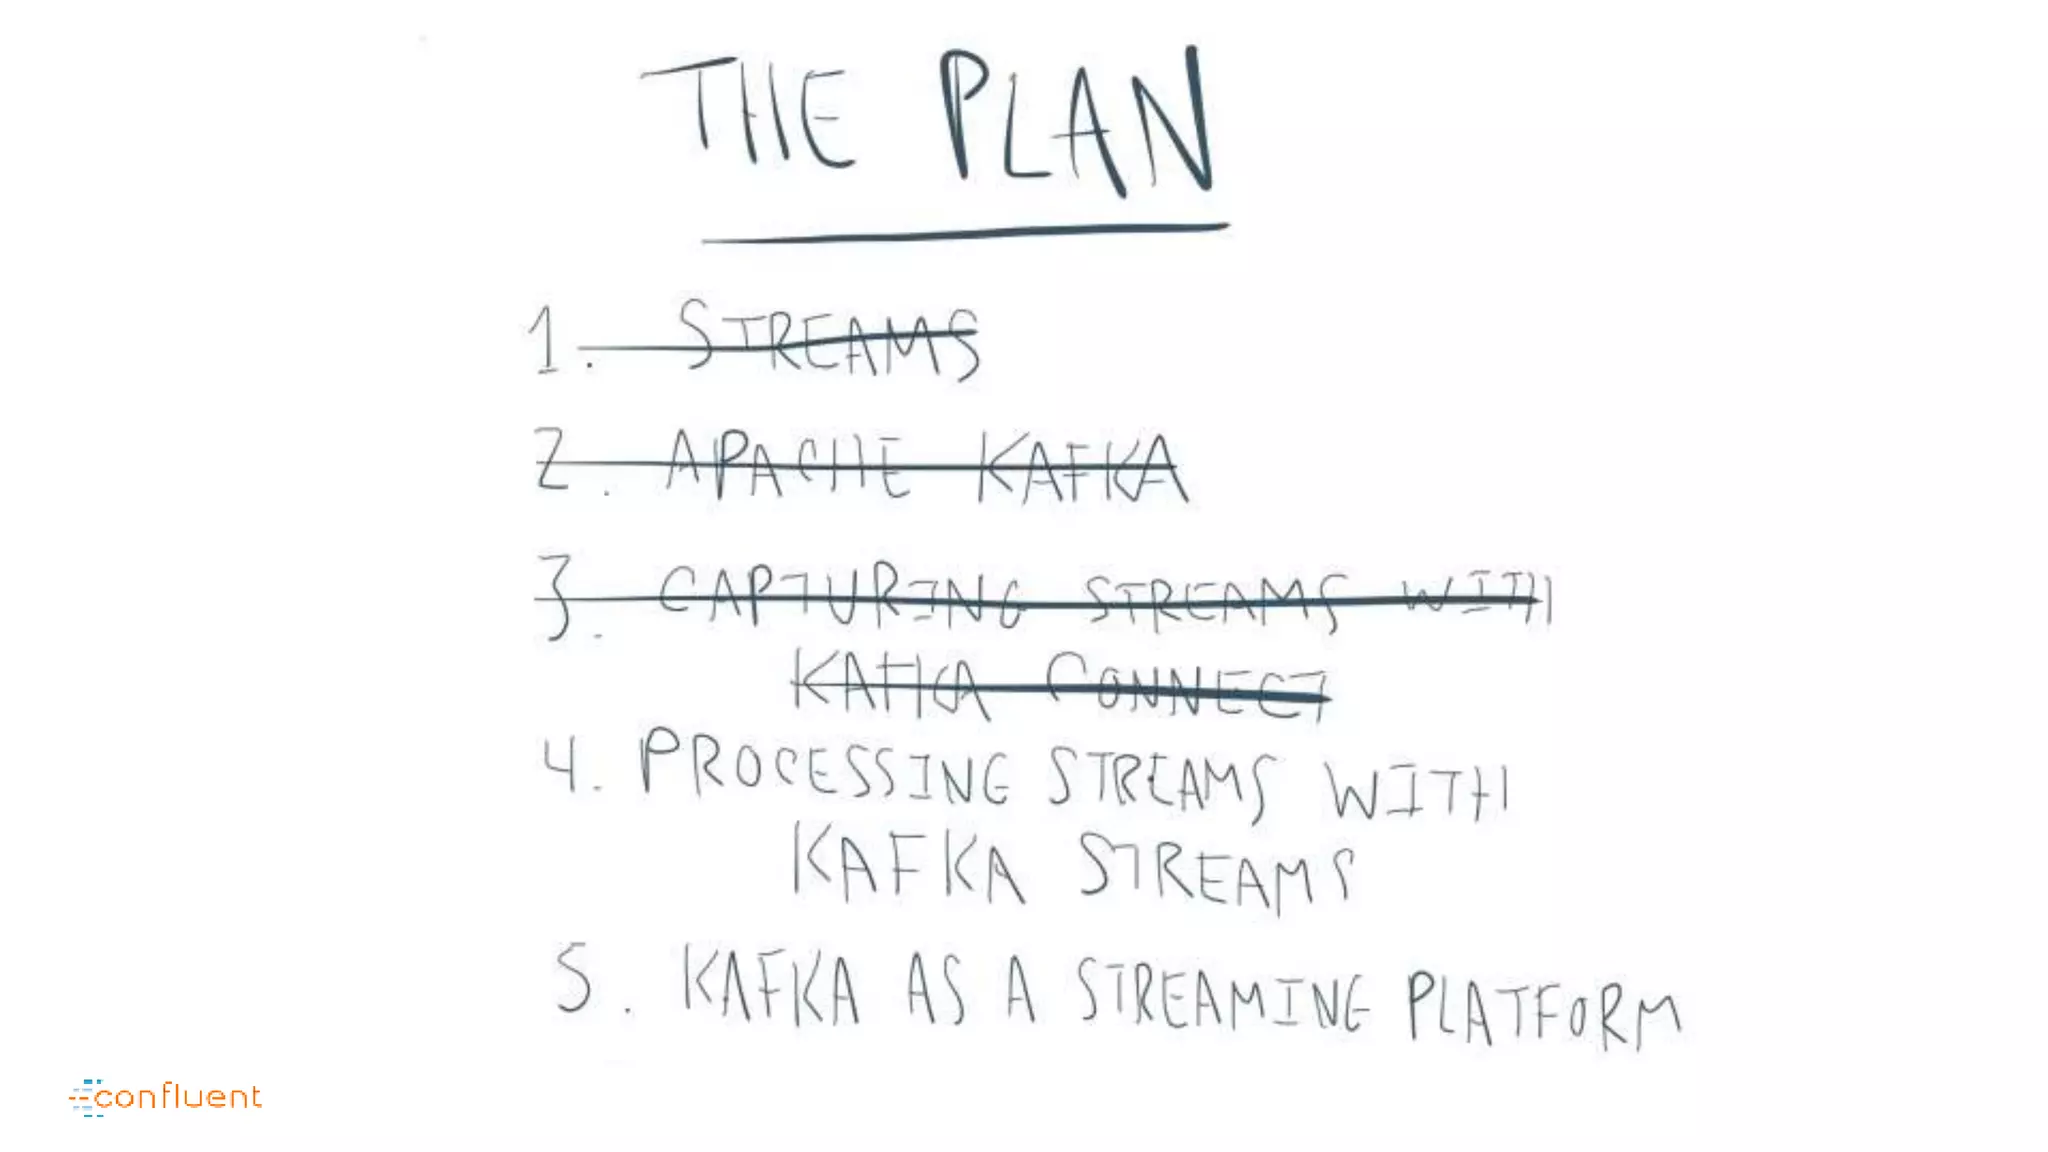 THE PLAN
1. STREAMS
2. APACHE KAFKA
3. CAPTURING STREAMS WITH
KAFKA CONNECT
4. PROCESSING STREAMS WITH
KAFKA STREAMS
5. KAFKA AS A STREAMING PLATFORM
confluent